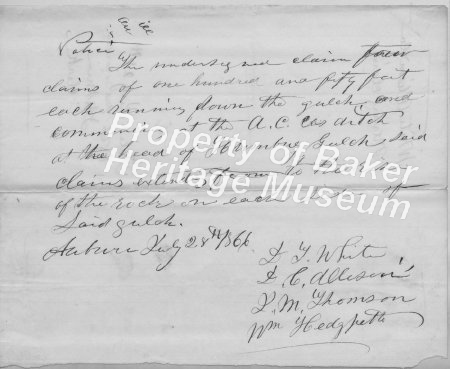 Notice
The undersigned claim four
claims of one hundred and fifty feet
each running down the gulch and
commencing at the A. C. Cos ditch
at the head of Gulch said
claims extending to the
of the rock on each side of
Said gulch.
Auburn July 28th 1866
D. T. White
D. C. Allison
D. M. Thomson
Wm Hedgpeth
Property of Baker
Heritage Museum